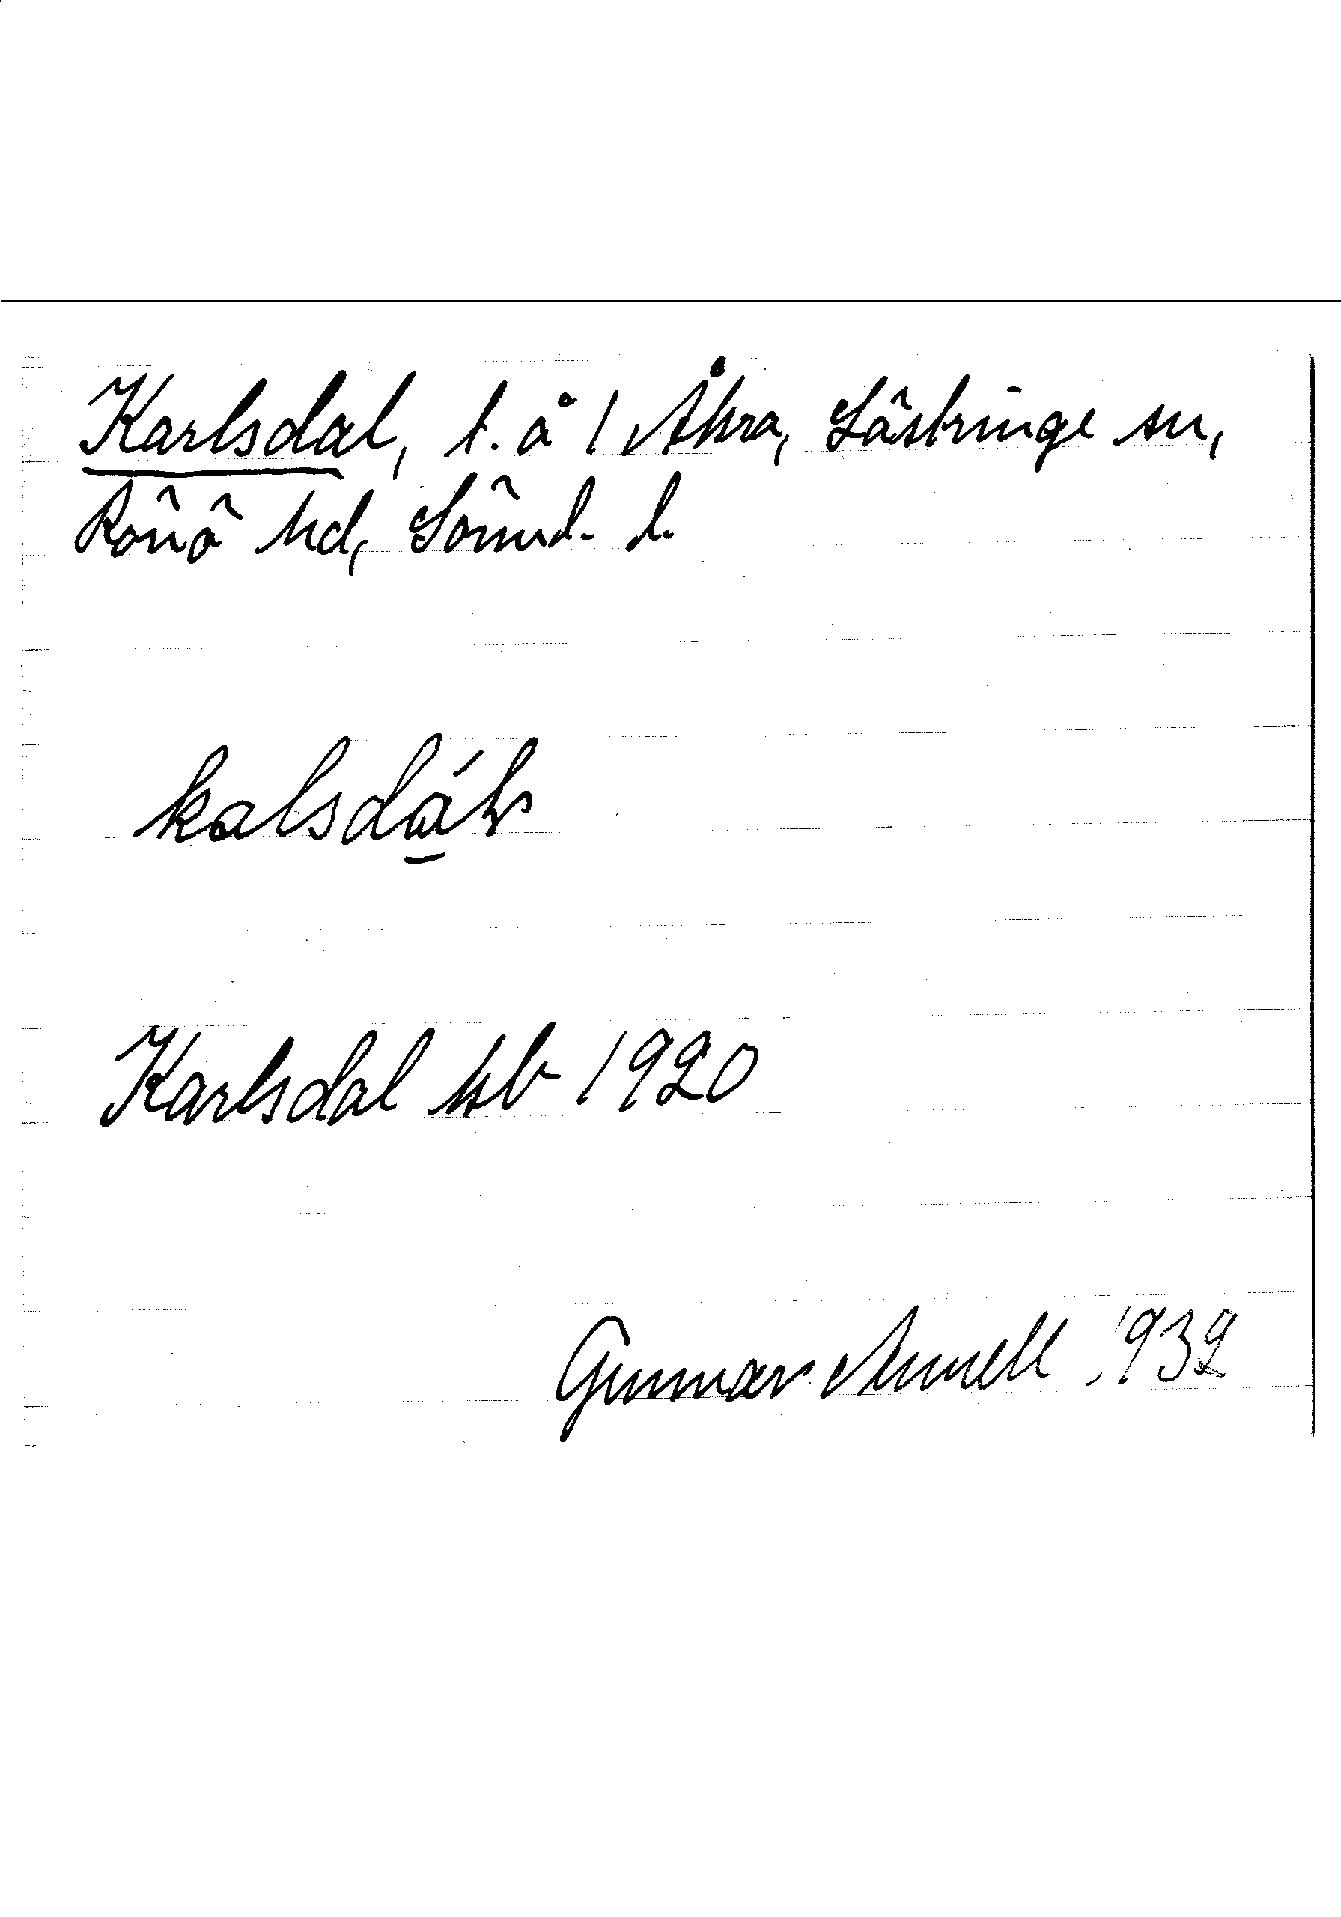 Karlsdal, t. å 1 Åkra, Lästringe sn,
Rönö hd, Sörml. l.
kalsdáls
Karlsdal kb 1920
Gunnar Annell 1932